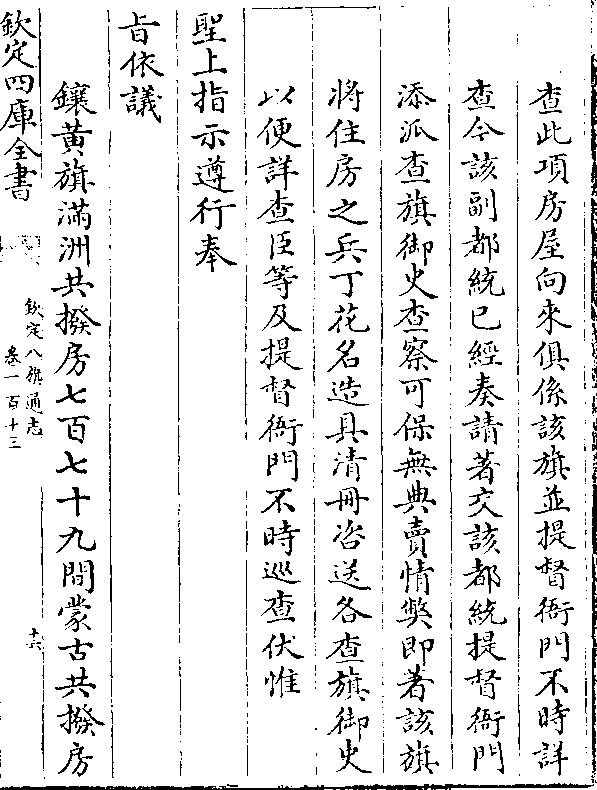 查此項房屋向來俱係該旗並提督衙門不時詳
查今該副都統已經奏請著交該都統提督衙門
添派查旗御史查察可保無典賣情弊即著該旗
將住房之兵丁花名造具清冊咨送各查旗御史
以便詳查臣等及提督衙門不時巡查伏惟
聖上指示遵行奉
旨依議
鑲黃旗滿洲共撥房七百七十九間蒙古共撥房
欽定四庫全書
欽定八旗通志
卷一百十三
十六